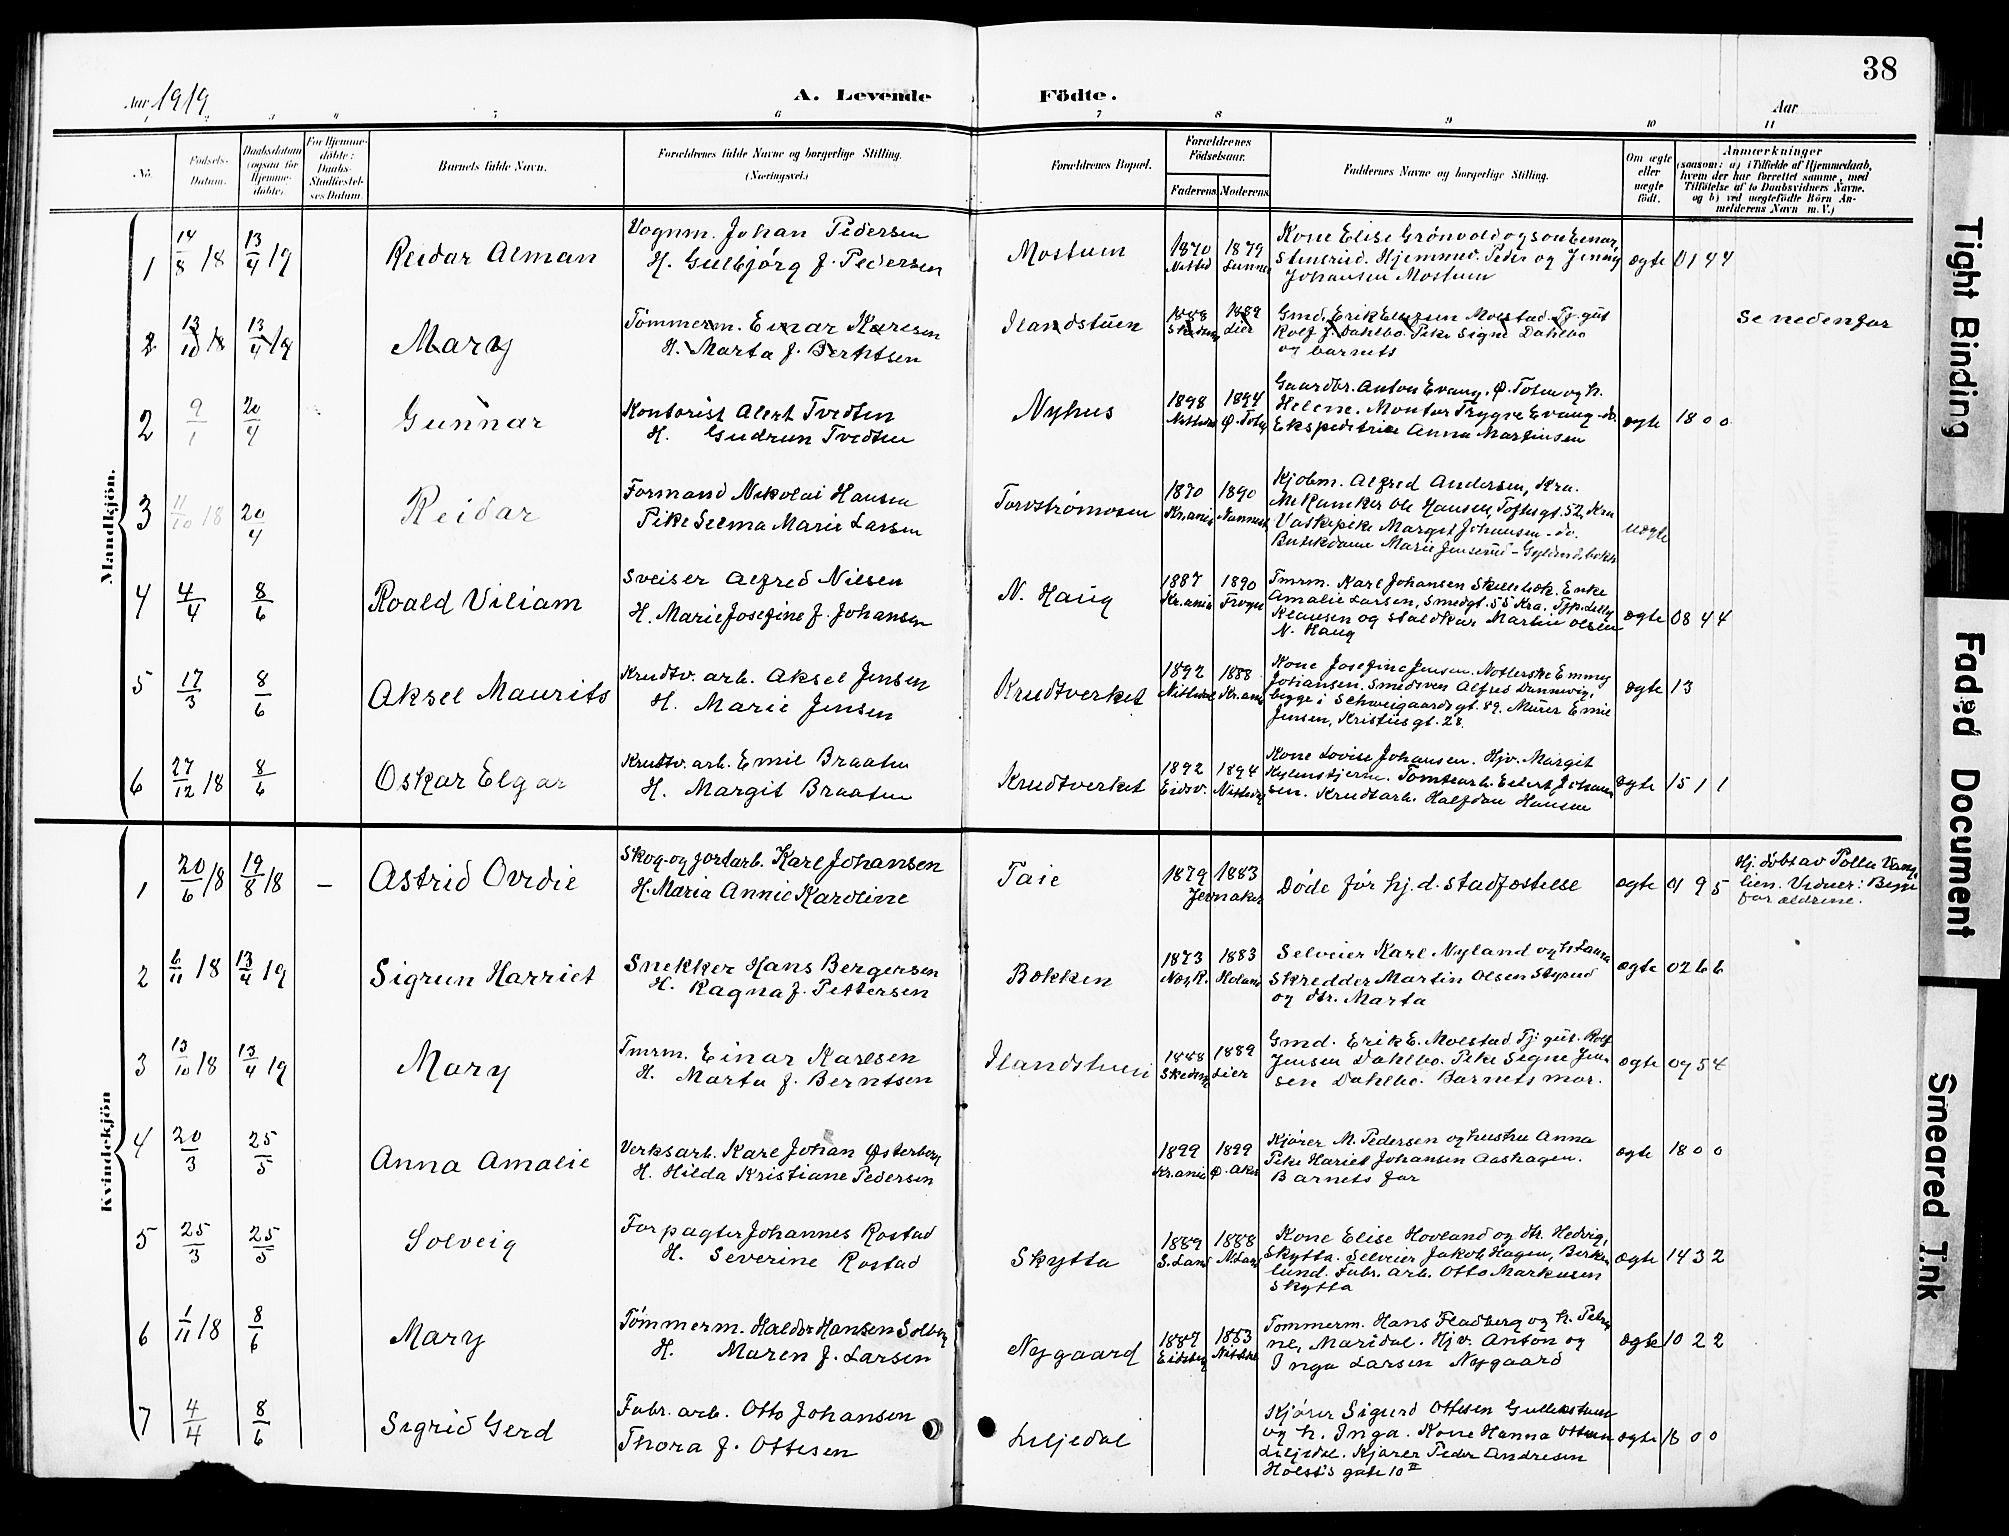 38
Aar 1919
A. Levende Födte.
Aar
3 4 5 6 7 8 9 10 11
No.
Födsels-Datum.
Daabsdatum (ogsaa for Hjemmedöbte).
For Hjemmedöbte: Daabs-Stadfæstelses Datum
Barnets fulde Navn.
Forældrenes fulde Navne og borgerlige Stilling.
(Næringsvei.)
Forældrenes Bopæl.
Forældrenes Födselsaar.
Faderens. Moderens.
Faddernes Navne og borgerlige Stilling.
Om ægte eller uægte födt.
Anmærkninger
(saasom: a) i Tilfælde af Hjemmedaab,
hvem der har forrettet samme, med
Tilföielse af to Daabsvidners Navne.
og b) ved uægtefödte Börn An-
melderens Navn m. V.)
Mandkjön.
1 14/8 18 13/4 19 Reidar Alman
Vognm. Johan Pedersen
H. Gulbjórg f. Pedersen
Mostuen 1870 1879 Lunner
Kone Elise Grønvold og søn Einar,
Stensrud. Hjemmev. Peder og Jenny
Johansen Mostuen
ægte 0144
2 13/10 18 13/4 19 Mary
Tømmerm. Einar Karlsen
H. Marta f. Berntsen
Ilandstuen 1888 1889 Lier
Gmd. Erik Moestad Tj. gut
Rolf J. Dahlbo. Pike Signe Dahlbo
og barnets
Se nedenfor
2 9/1 20/4 Gunnar
Kontorist Alert Tvedten
H. Gudrun Tvedten
Nyhus 1898 1894
Gaardbr. Anton Evang, Ø. Toten og h.
Helene. Montør Trygve Evang do.
Ekspeditrice Anna Martinsen
ægte 1800
3 11/10 18 20/4 Reidar
Formand Nikolai Hansen
Pike Selma Marie Larsen
Torvstrømosen 1870 1890 Kr.ania
Kjøbm. Alfred Andersen, Kra.
Mekaniker Ole Hansen, Toftesgt. 52, Kra
Vaskepike Margit Johansen - do.
Butikdame Marie Jensrud -
uægte
4 4/4 8/6 Roald Viliam
Sveiser Alfred Nilsen
H. Marie Josefine f. Johansen
N. Haug 1887 1890 Kr.ania Trogst
Tmrm. Karl Johansen Skillebæk. Enke
Amalie Larsen, Smedgt. 55 Kra. Tjp. Lilly
Klausen og staldkar Martin Olsen
N. Haug
ægte 0844
5 17/3 8/6 Aksel Maurits
Krudtv. arb. Aksel Jensen
H. Marie Jensen
Krudtverket 1892 1888 Nittedal Kr.ania
Kone Josefine Jensen. Emmy
Johansen. Smedsven Alfred Dannevig,
begge i Schweigaardsgt. 89. Murer Emil
Jensen, Kristiusgt. 28.
ægte 13
6 27/12 18 8/6 Oskar Elgar
Krudtv. arb. Emil Braaten
H. Margit Braaten
Krudtverket 1892 1894 Eidsv. Nittedal
Kone Lovise Johansen. Hjv. Margit
Tomtearb. Johan-
sen. Krudtarb. Halfdan Hansen
ægte 1511
Kvindekjön
1 20/6 18 19/8 18 – Astrid Ovedie
Skog- og jordarb. Karl Johansen
H. Maria Annie Karoline
Taie 1879 1883 Jevnaker
Døde før hj. d. stadfæstelse
ægte 0195
Hj. døbt av
lien. Vidner: Begge
forældrene.
2 6/11 18 13/4 19 Sigrun Harriet
Snekker Hans Bergersen
H. Ragna f. Pettersen
Bokken 1873 1883
Selveier Karl Nyland og h. Laura
Skredder Martin Olsen Styrud
og dtr. Marta
ægte 0266
3 13/10 18 13/4 19 Mary
Tmrm. Einar Karlsen
H. Marta f. Berntsen
Ilandstuen 1888 1889 Skedsm Lier
Gmd. Erik E. Moestad Tj. gut. Rolf
Jensen Dahlbo. Pike Signe Jen-
sen Dahlbo. Barnets mor.
ægte 0954
4 20/3 25/5 Anna Amalie
Verksarb. Karl Johan Østerberg
H. Hilda Kristiane Pedersen
1899 1899 Kr.ania Ø. Aker
Kjører M. Pedersen og hustru Anna
Pike Hariet Johansen Aashagen.
Barnets far
ægte 1800
5 25/3 25/5 Solveig
Forpagter Johannes Rostad
H. Severine Rostad
Skytta 1889 1888 S. Land N. Land
Kone Elise Hovland og dtr. Hedvig,
Skytta. Selveier Jakob Hagen, Birke-
lund. Fabr. arb. Otto Markusen
Skytta
ægte 1432
6 1/11 18 8/6 Mary
Tømmerm. Haldor Hansen Solberg
H. Maren f. Larsen
Nygaard 1887 1883 Eidsberg Nittedal
Tømmerm. Hans Fladberg og h. Petri-
ne, Maridal. Hjv. Anton og
Inga Larsen Nygaard
ægte 1022
7 4/4 8/6 Sigrid Gerd
Fabr. arb. Otto Johansen
Thora f. Ottesen
Liljedal
Kjører Sigurd Ottesen Gullerstuen
og h. Inga. Kone Hanna Ottesen
Liljedal. Kjører Peder Andresen
Holst's gate 10 II
ægte 1800
Tight Binding
Faded Document
Smeared Ink